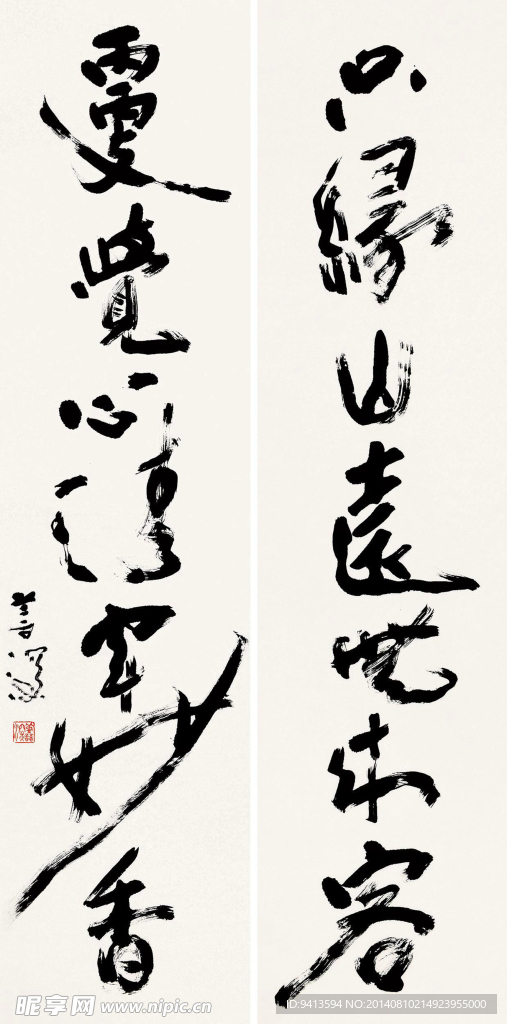 只緣山遠無來客
更覺心清聞妙香
昵享网 www.nipic.cn
ID:9413594 NO:20140810214923955000